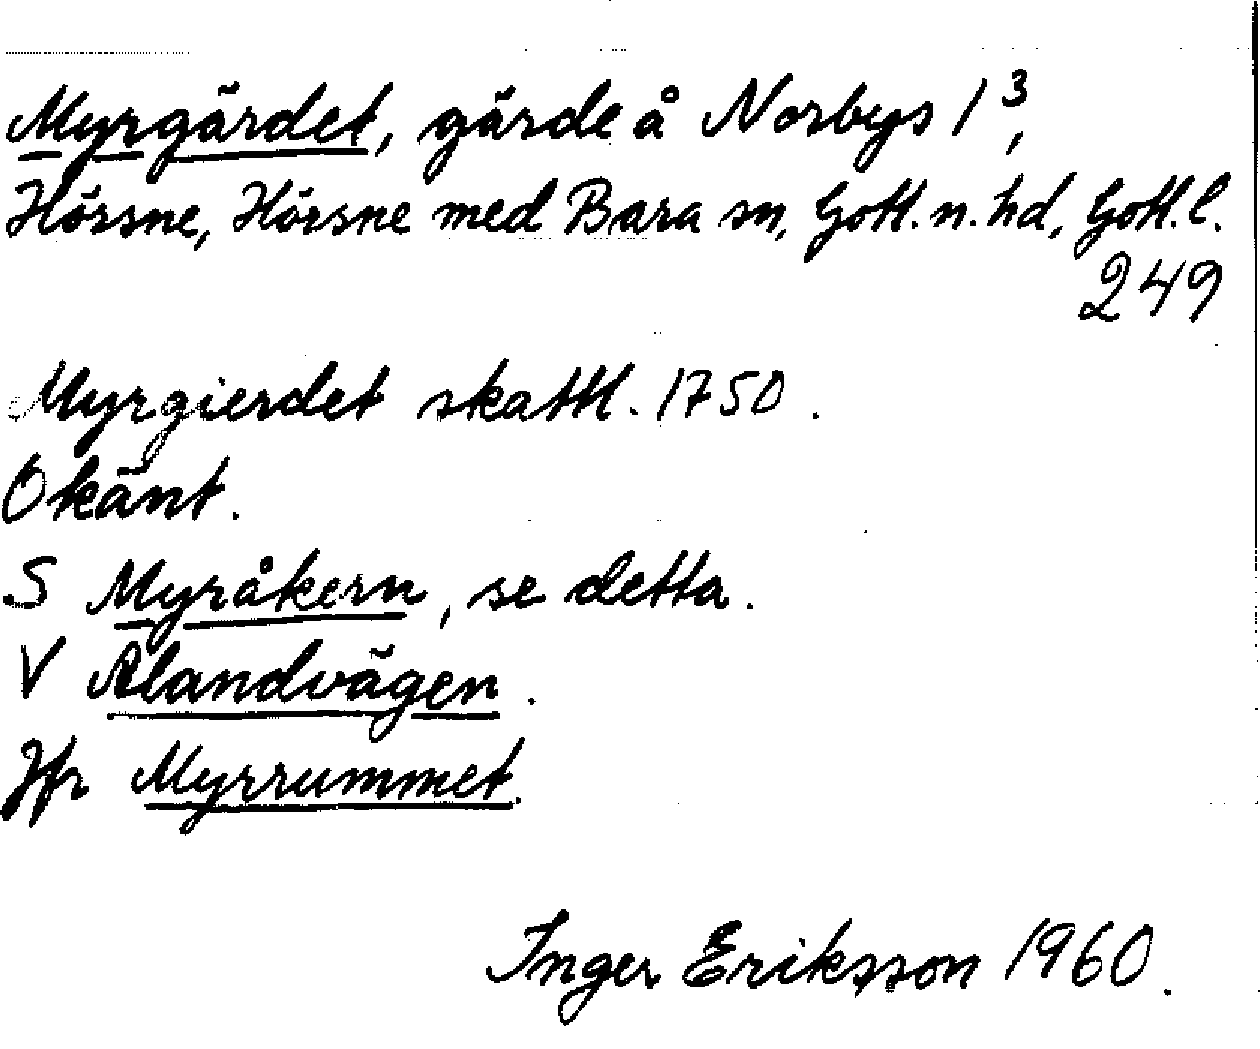 Myrgärdet, gärde å Norbys 1³,
Hörsne, Hörsne med Bara sn, Gotl. n. hd, Gotl. l.
249
Myrgierdet skattl. 1750.
Okänt.
S Myråkern, se detta.
V Alandvägen.
Jfr Myrrummet.
Inger Eriksson 1960.